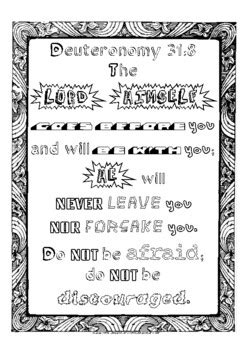 Deuteronomy 31:8
The
LORD HIMSELF
GOES BEFORE you
and will BE WITH you;
HE will
NEVER LEAVE you
NOR FORSAKE you.
Do NOT be afraid;
do NOT be
discouraged.